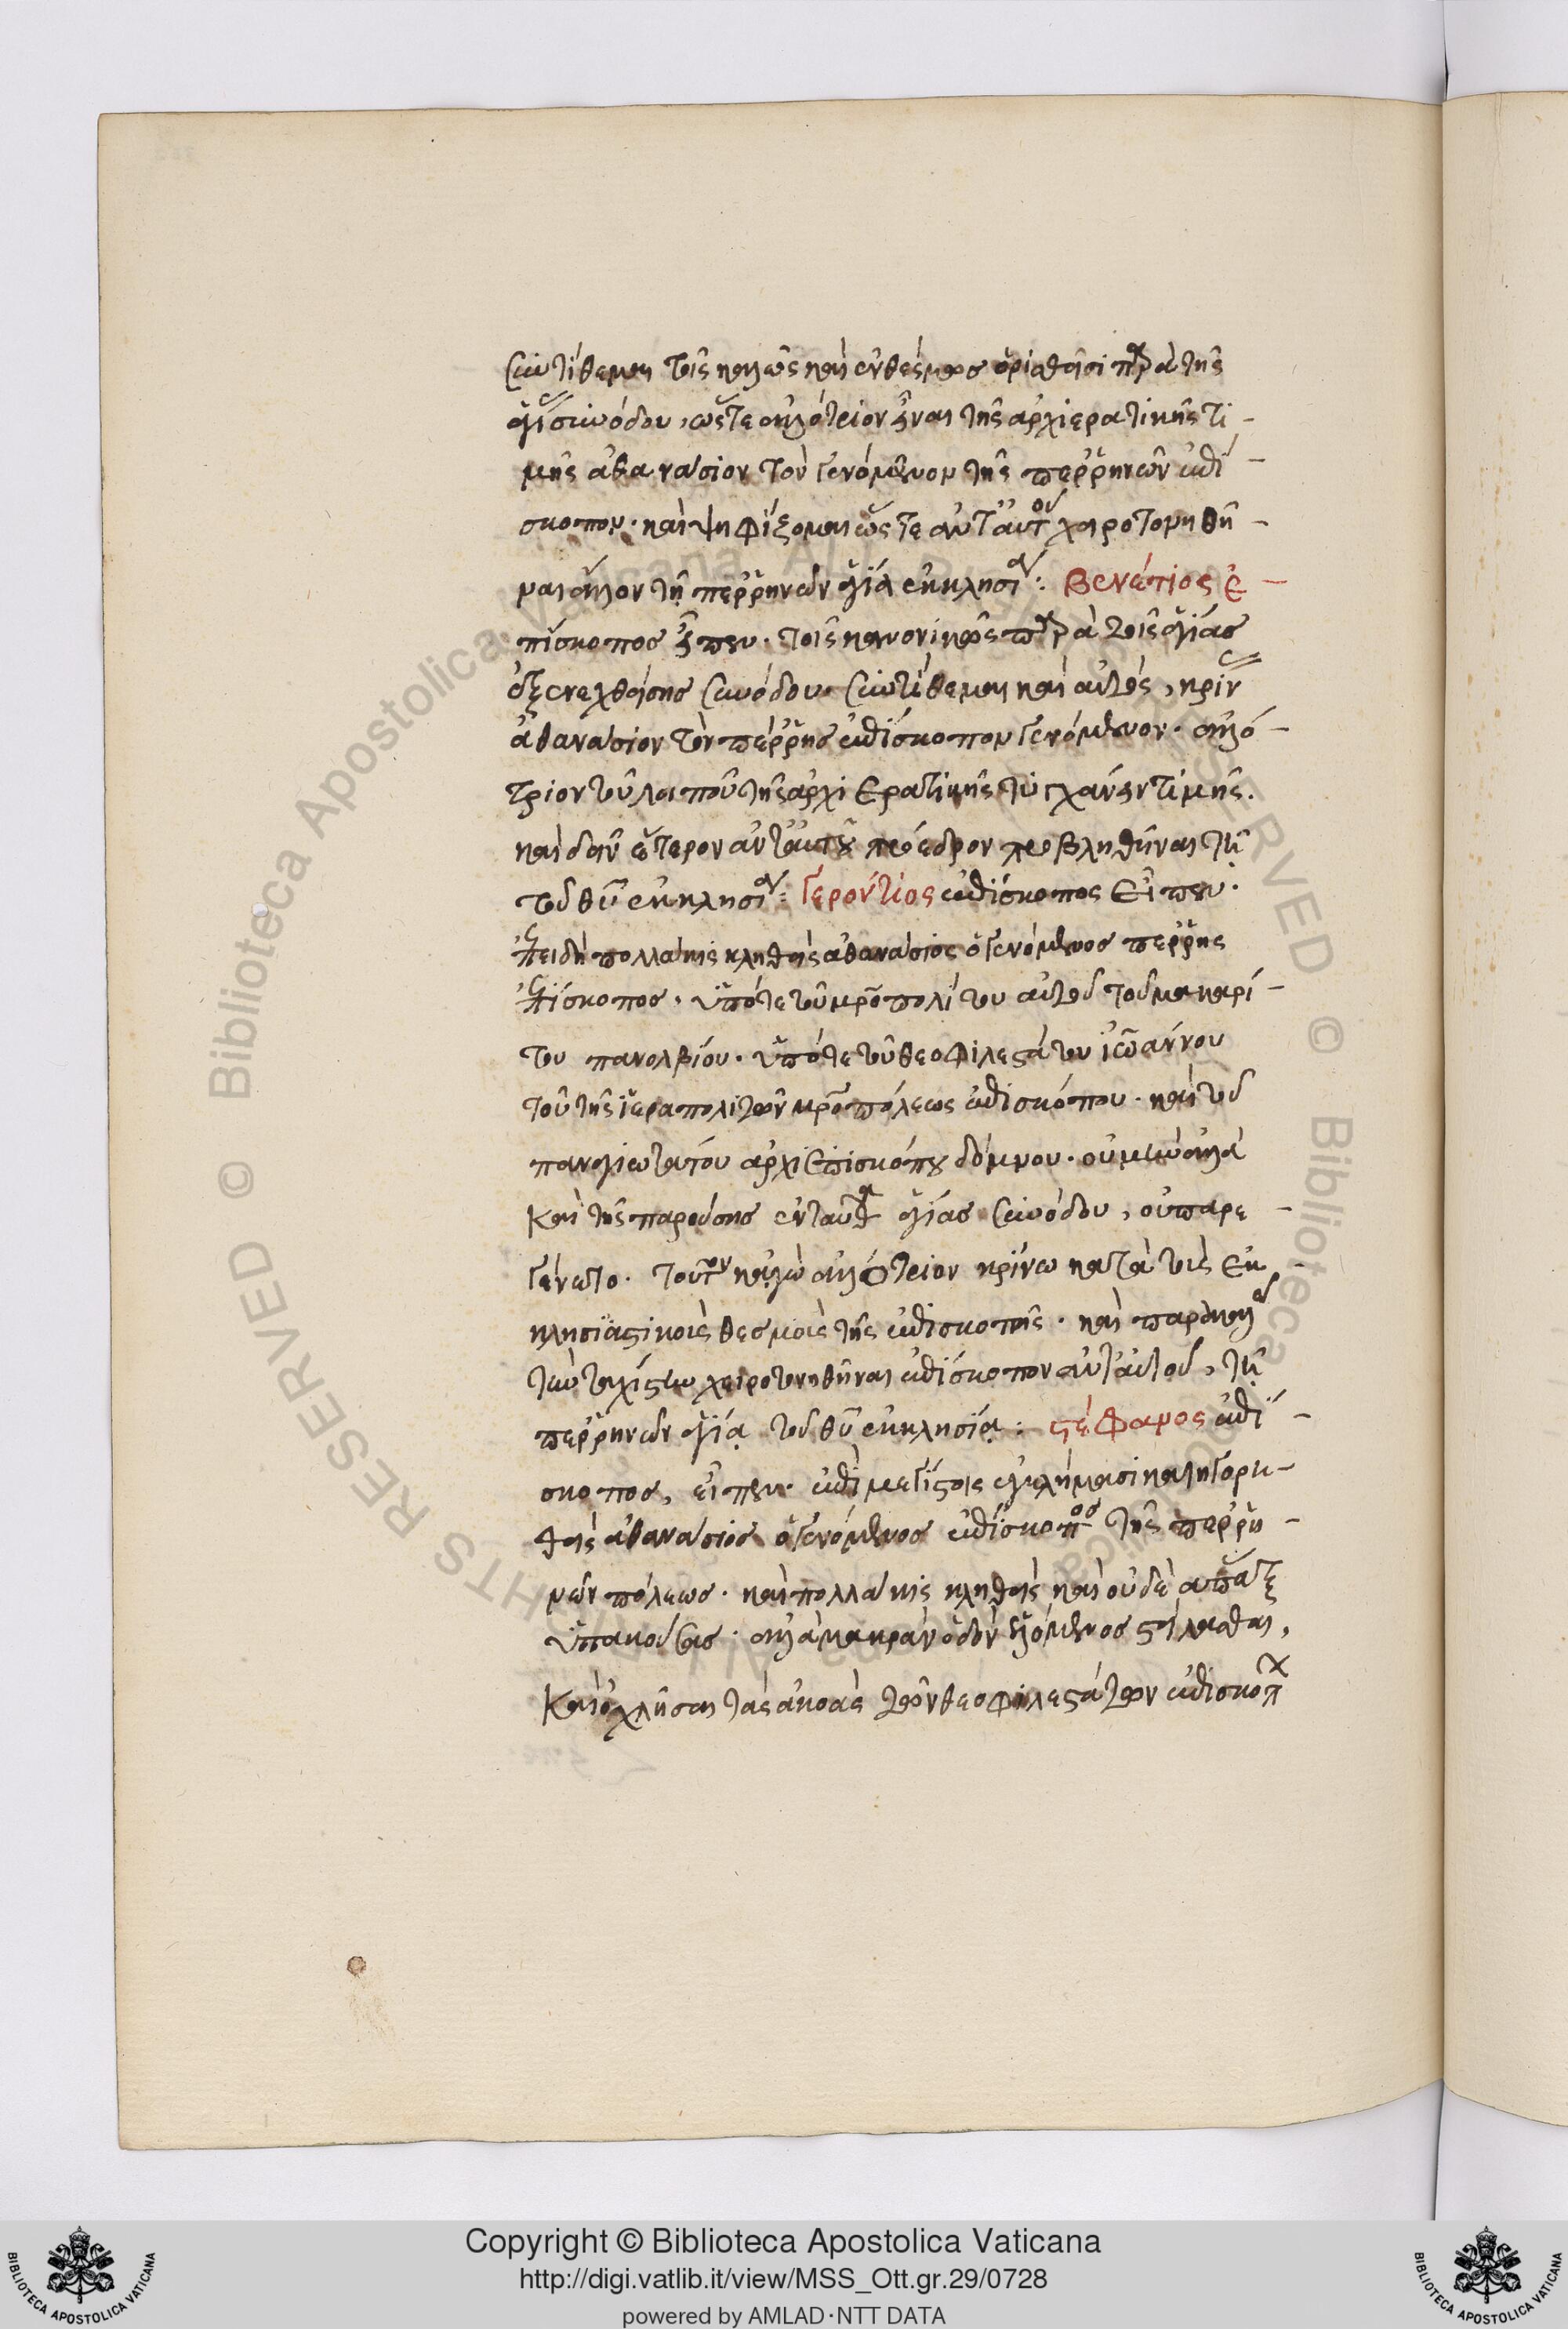 συντίθεμαι τοῖς καλῶς καὶ ἐνθέσμως ὁρισθεῖσι παρὰ τῆς
ἁγίας συνόδου, ὥστε ἀλλότριον εἶναι τῆς ἀρχιερατικῆς τι-
μῆς ἀθανάσιον τὸν γενόμενον τῆς περρηνῶν ἐπί-
σκοπον. καὶ ψηφίζομαι ὥστε ἀντ' αὐτοῦ χειροτονηθῆ-
ναι ἄλλον τῇ περρηνῶν ἁγίᾳ ἐκκλησίᾳ: Βενέτιος ἐ-
πίσκοπος εἶπεν. τοῖς κανονικῶς παρὰ τῆς ἁγίας
ἐξενεχθεῖσης συνόδου συντίθεμαι καὶ αὐτὸς, κρίνας
ἀθανάσιον τὸν πέρρης ἐπίσκοπον γενόμενον. ἀλλό-
τριον τοῦ λοιποῦ τῆς ἀρχιερατικῆς τυγχάνειν τιμῆς.
καὶ δεῖν ἕτερον ἀντ' αὐτοῦ πρόεδρον προβληθῆναι τῇ
τοῦ θυ ἐκκλησίᾳ: Γερόντιος ἐπίσκοπος εἶπεν.
ἐπειδὴ πολλάκις κληθεὶς ἀθανάσιος ὁ γενόμενος πέρρης
ἐπίσκοπος. ὑπό τε τοῦ μροπολίτου αὐτοῦ τοῦ μακαρί-
του πανολβίου. ὑπό τε τοῦ θεοφιλεστάτου ἰωάννου
τοῦ τῆς ἱεραπολιτῶν μροπόλεως ἐπισκόπου. καὶ τοῦ
παναγιωτάτου ἀρχιεπισκόπου δόμνου. οὐ μὴν ἀλλὰ
καὶ τῆς παρούσης ἐνταῦθα ἁγίας συνόδου, οὐ παρε-
γένετο. τοῦτον κἀγὼ ἀλλότριον κρίνω κατὰ τοὺς ἐκ-
κλησιαστικοὺς θεσμοὺς τῆς ἐπισκοπῆς. καὶ παρακαλῶ
τὴν ταχίστην χειροτονηθῆναι ἐπίσκοπον ἀντ' αὐτοῦ, τῇ
περρηνῶν ἁγίᾳ τοῦ θυ ἐκκλησίᾳ: στέφανος ἐπί-
σκοπος, εἶπεν. ἐπὶ μεγίστοις ἐγκλήμασι κατηγορη-
θεὶς ἀθανάσιος ὁ γενόμενος ἐπίσκοπος τῆς περρη-
νῶν πόλεως. καὶ πολλάκις κληθεὶς καὶ οὐδὲ ἅπαξ
ὑπακούσας. ἀλλὰ μακρὰν ὁδὸν ἑλόμενος στείλασθαι,
καὶ ὀχλῆσαι τὰς ἀκοὰς τῶν θεοφιλεστάτων ἐπισκόπων
Copyright © Biblioteca Apostolica Vaticana
http://digi.vatlib.it/view/MSS_Ott.gr.29/0728
powered by AMLAD·NTT DATA